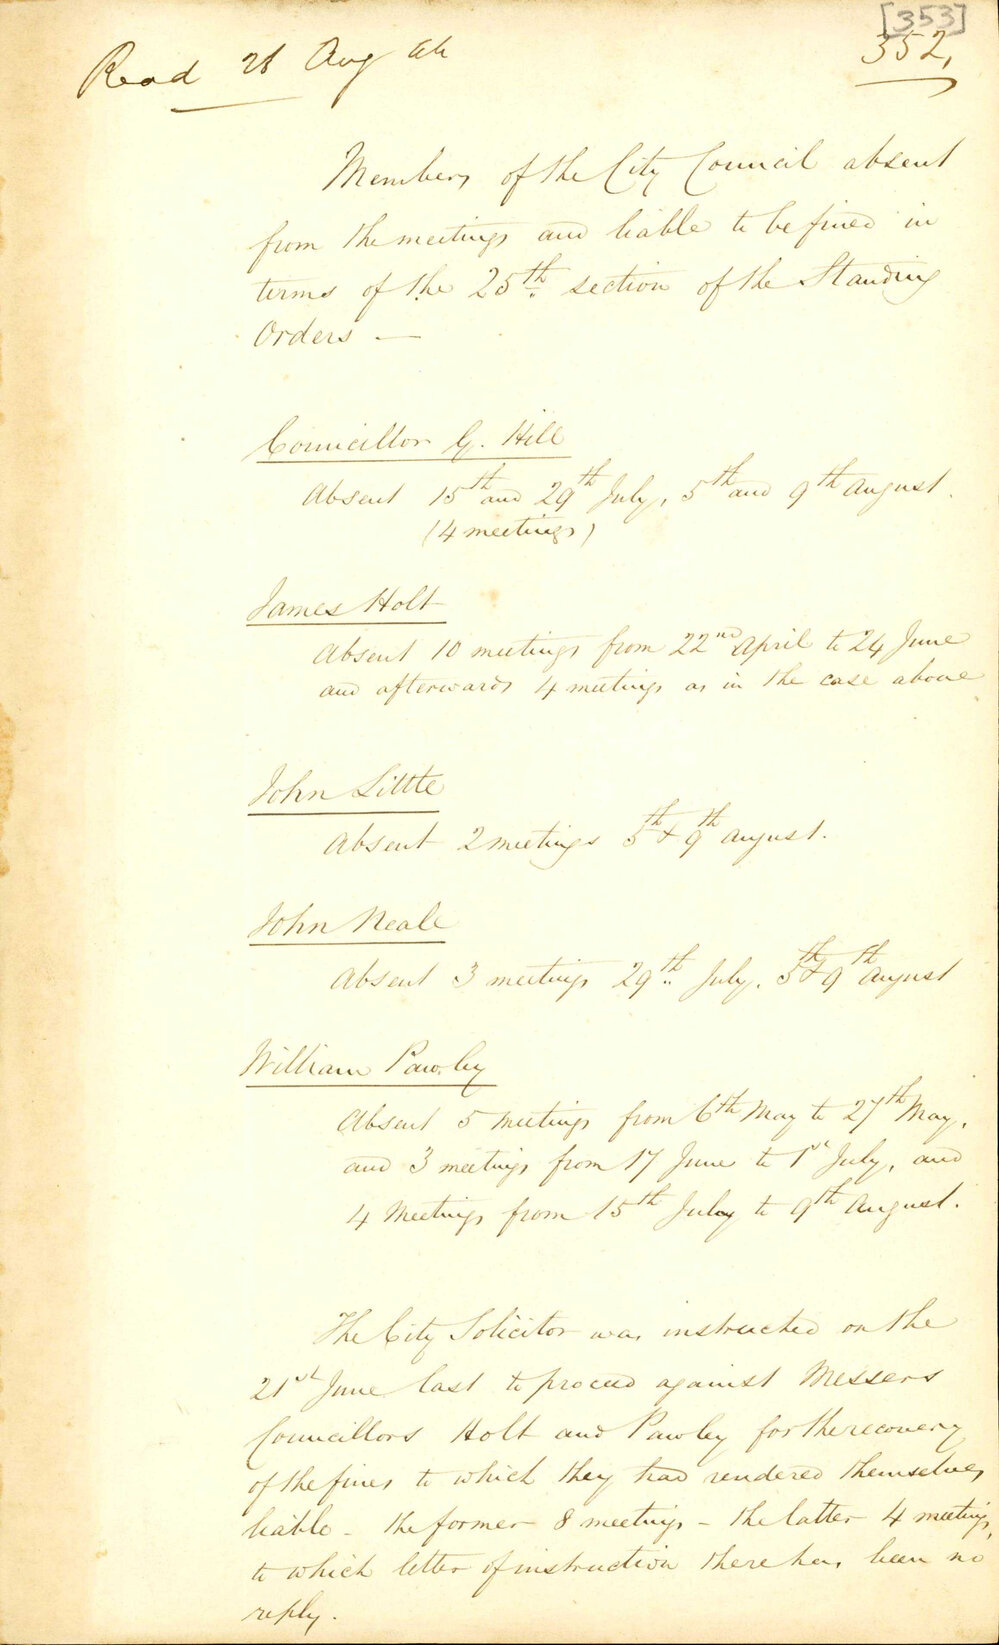 [353]
352,
Read 26 Aug
Members of the City Council absent
from the meetings and liable to be fined in
terms of the 25th section of the Standing
Orders —
Councillor G. Hill
Absent 15th and 29th July, 5th and 9th August.
(4 meetings)
James Holt
Absent 10 meetings from 22nd April to 24 June
and afterwards 4 meetings as in the case above
John Little
Absent 2 meetings 5th & 9th August.
John Neale
Absent 3 meetings 29th July. 5th & 9th August
William Pawley
Absent 5 meetings from 6th May to 27th May,
and 3 meetings from 17 June to 1st July, and
4 Meetings from 15th July to 9th August.
The City Solicitor was instructed on the
21st June last to proceed against Messers
Councillors Holt and Pawley for the recovery
of the fines to which they had rendered themselves
liable - the former 8 meetings - the latter 4 meetings,
to which letter of instruction there has been no
reply.